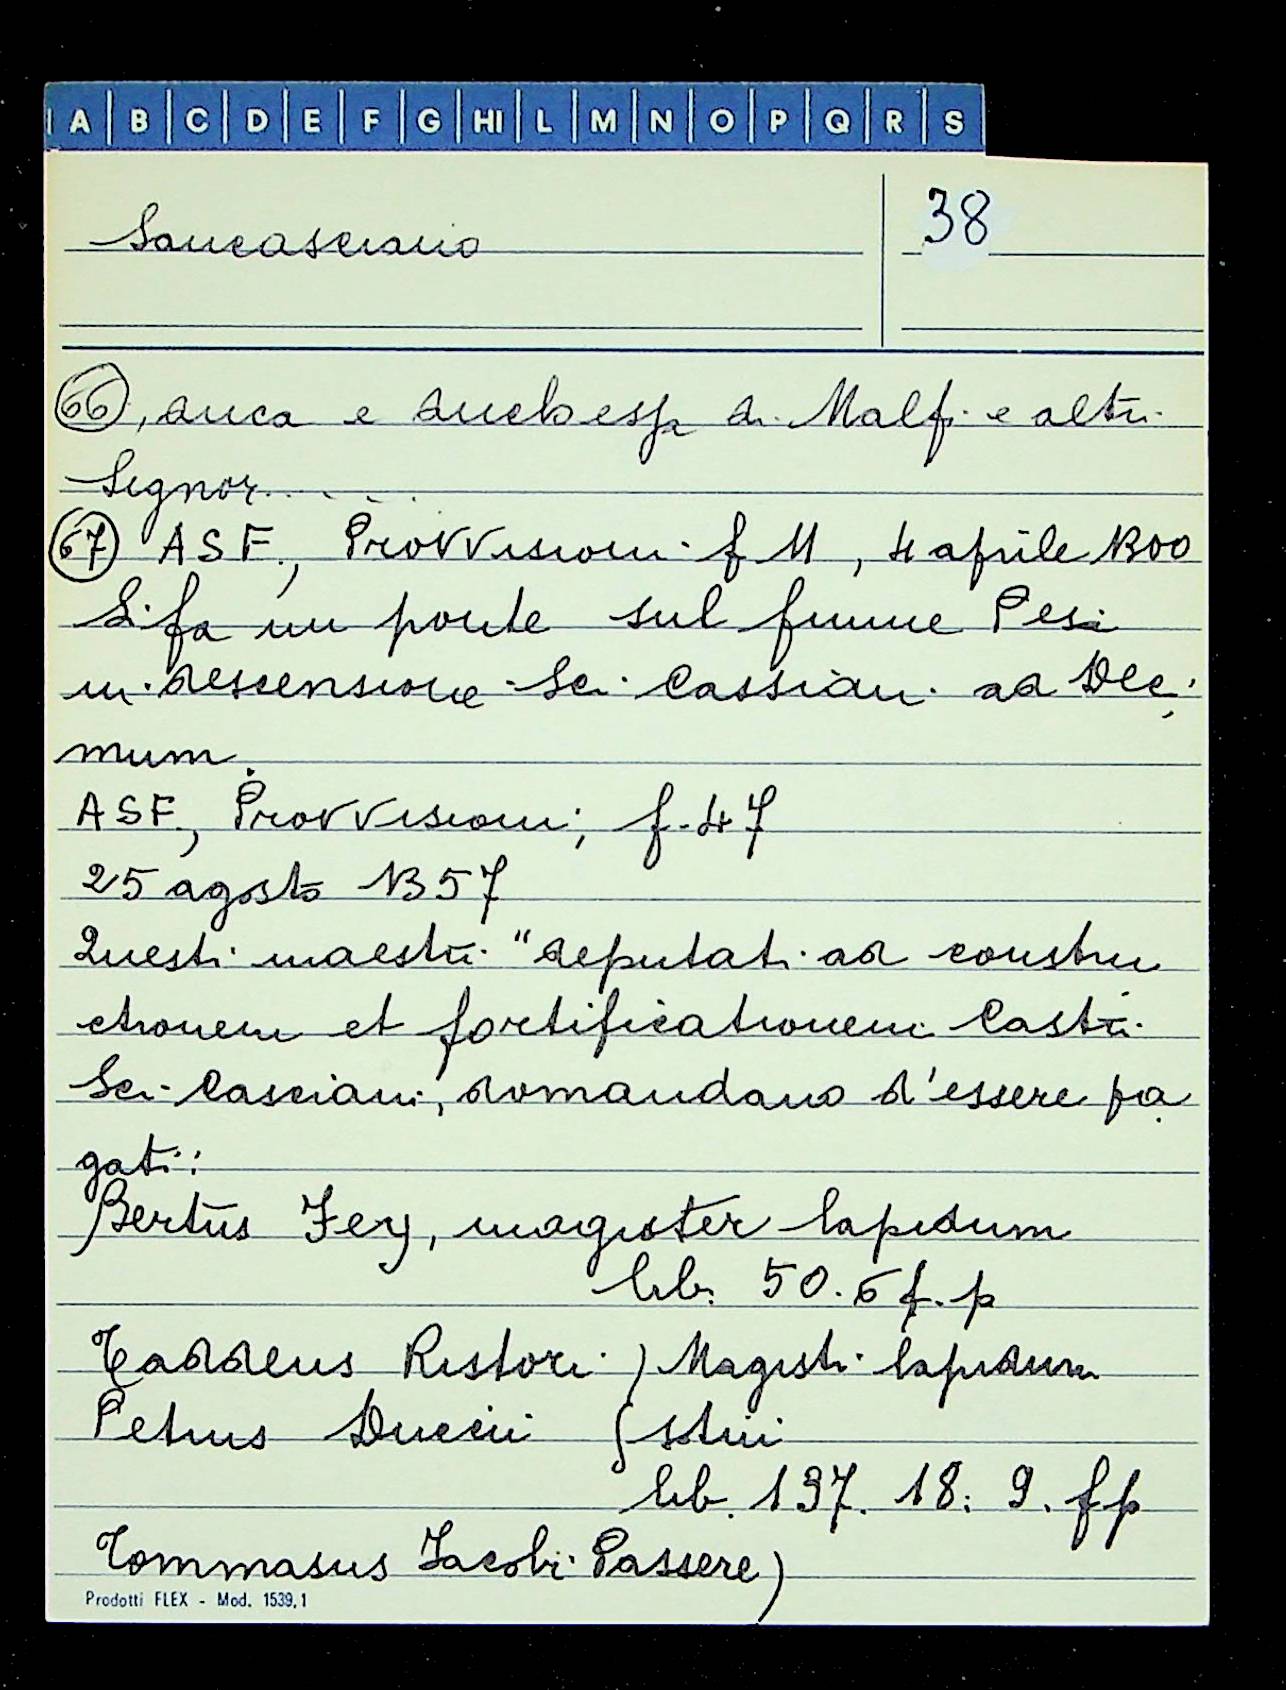 A B C D E F G HI L M N O P Q R S
Sancasciano
38
66, duca e duchessa di Malfi e altri
Signori.....
67 ASF., Provvisioni f 11, 4 aprile 1300
Si fa un ponte sul fiume Pesa
in descensione Sci Cassiani ad Deci
mum.
ASF., Provvisioni, f. 47
25 agosto 1357
Questi maestri "deputati ad constru
ctionem et fortificationem Castri
Sci Casciani, domandano d'essere pa
gati:
Bertus Fey, magister lapidum
lib. 50. 6 f. p
Taddeus Ristori ) Magistri lapidum
Petrus Duccii ( sotii
lib. 197. 18: 9. f p
Tommasus Jacobi Passere)
Prodotti FLEX - Mod. 1539,1